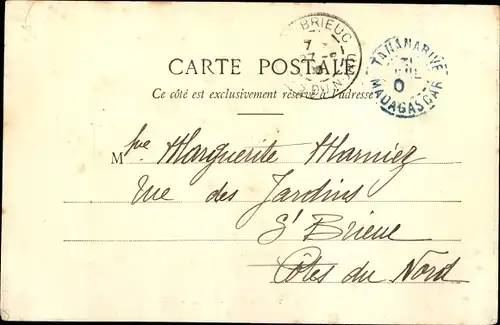 BRIEUC
TANANARIVE
MADAGASCAR
CARTE POSTALE
Ce côté est exclusivement réservé à l'adresse
Mlle Marguerite
Rue des Jardins
St Brieuc
Côtes du Nord